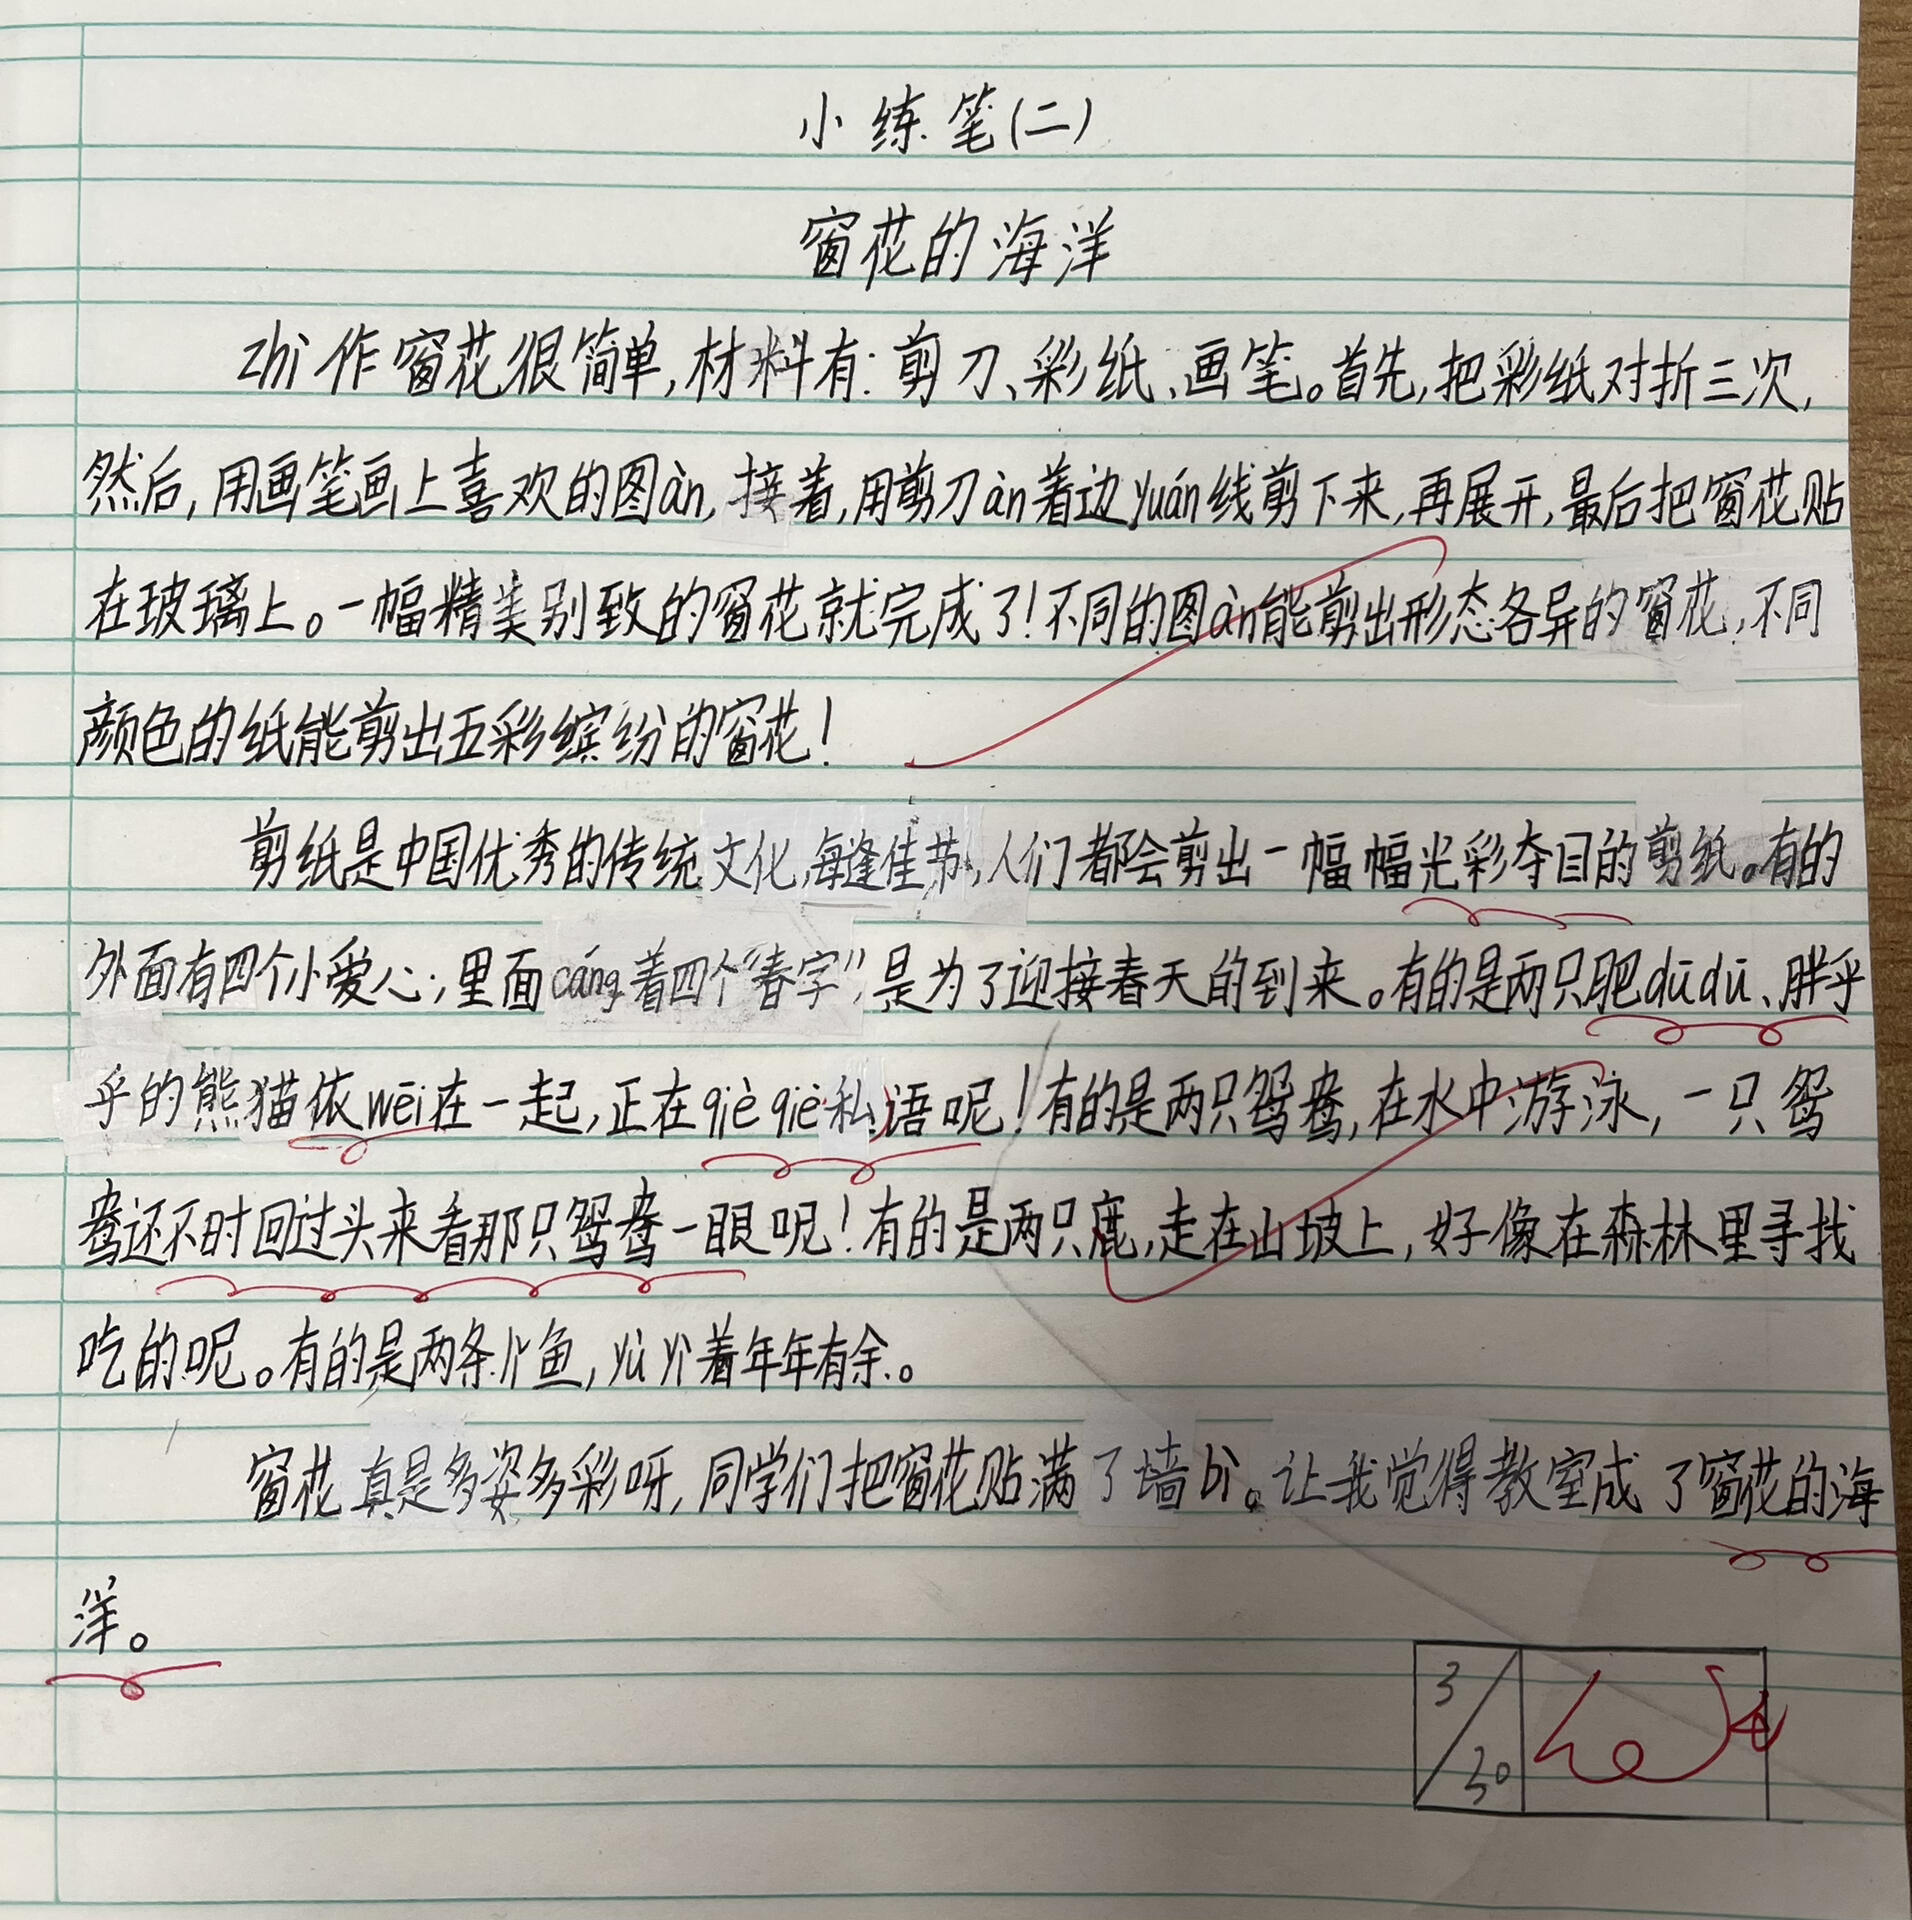 小练笔(二)
窗花的海洋
zhì作窗花很简单,材料有:剪刀、彩纸、画笔。首先,把彩纸对折三次,
然后,用画笔画上喜欢的图àn,接着,用剪刀àn着边yuán线剪下来,再展开,最后把窗花贴
在玻璃上。一幅精美别致的窗花就完成了!不同的图àn能剪出形态各异的窗花,不同
颜色的纸能剪出五彩缤纷的窗花!
剪纸是中国优秀的传统文化,每逢佳节,人们都会剪出一幅幅光彩夺目的剪纸。有的
外面有四个小爱心;里面cáng着四个“春字”,是为了迎接春天的到来。有的是两只肥dūdū、胖乎
乎的熊猫依wēi在一起,正在qièqiè私语呢!有的是两只鸳鸯,在水中游泳,一只鸳
鸯还不时回过头来看那只鸳鸯一眼呢!有的是两只鹿,走在山坡上,好像在森林里寻找
吃的呢。有的是两条小鱼,yùyì着年年有余。
窗花真是多姿多彩呀,同学们把窗花贴满了墙bì。让我觉得教室成了窗花的海
洋。
3/30